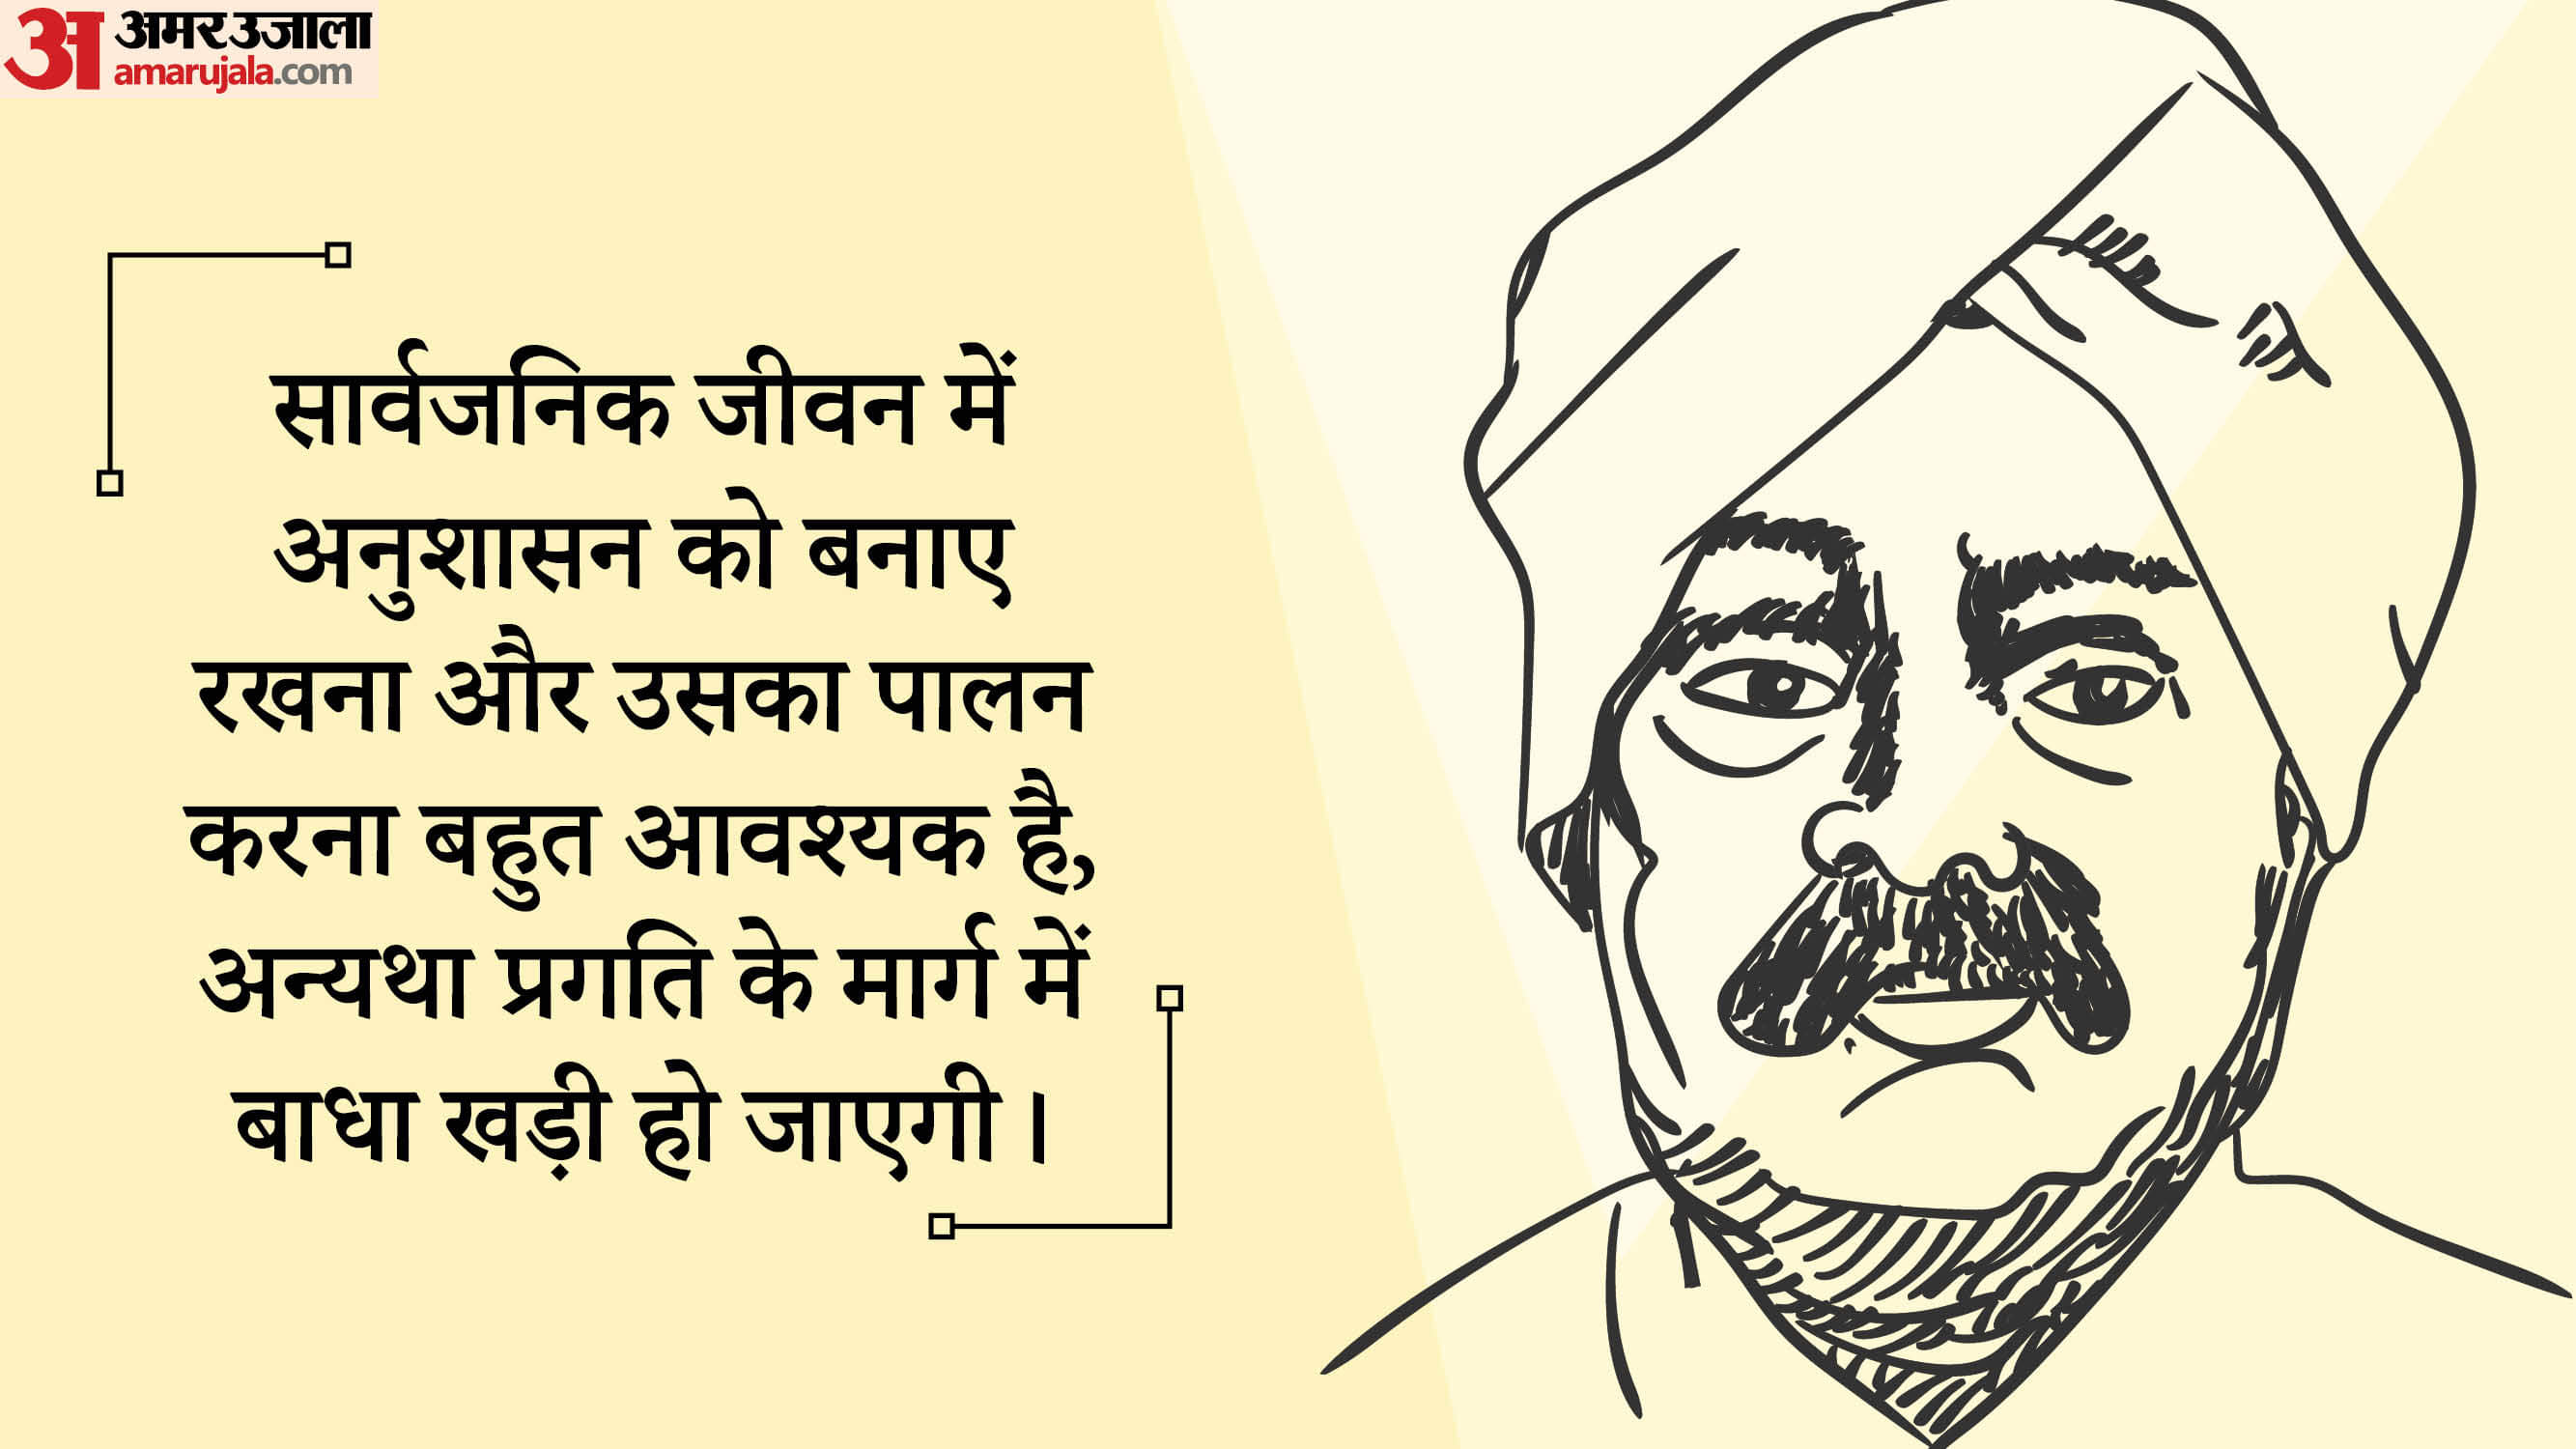 अ अमर उजाला
amarujala.com
सार्वजनिक जीवन में
अनुशासन को बनाए
रखना और उसका पालन
करना बहुत आवश्यक है,
अन्यथा प्रगति के मार्ग में
बाधा खड़ी हो जाएगी।